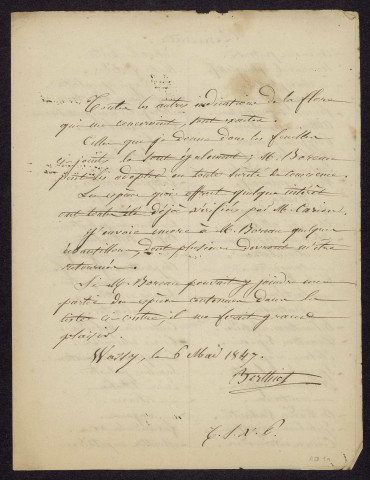 Toutes les autres indications de la flore
qui me concernent, sont exactes.
Celles que je donne dans les feuilles
ci-jointes le sont également; M. Boreau
peut les adopter en toute sûreté de conscience.
Les espèces qui offrent quelque intérêt
ont toutes été déjà vérifiées par M. Carion.
J'envoie encore à M. Boreau quelques
échantillons, dont plusieurs devront m'être
retournés.
Si M. Boreau pouvait y joindre une
partie des espèces contenues dans la
liste ci-contre, il me ferait grand
plaisir.
le 6 Mai 1847.
T. S. V. P.